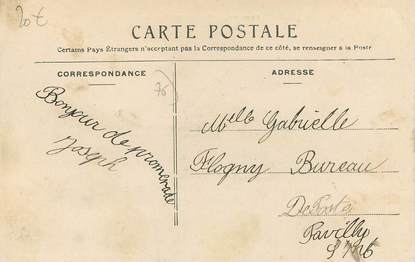 20t
CARTE POSTALE
Certains Pays Étrangers n'acceptant pas la Correspondance de ce côté, se renseigner à la Poste
CORRESPONDANCE
ADRESSE
76
Bonjour de promenade
Joseph
Melle Gabrielle
Flogny Bureau
De Poste
Pavilly